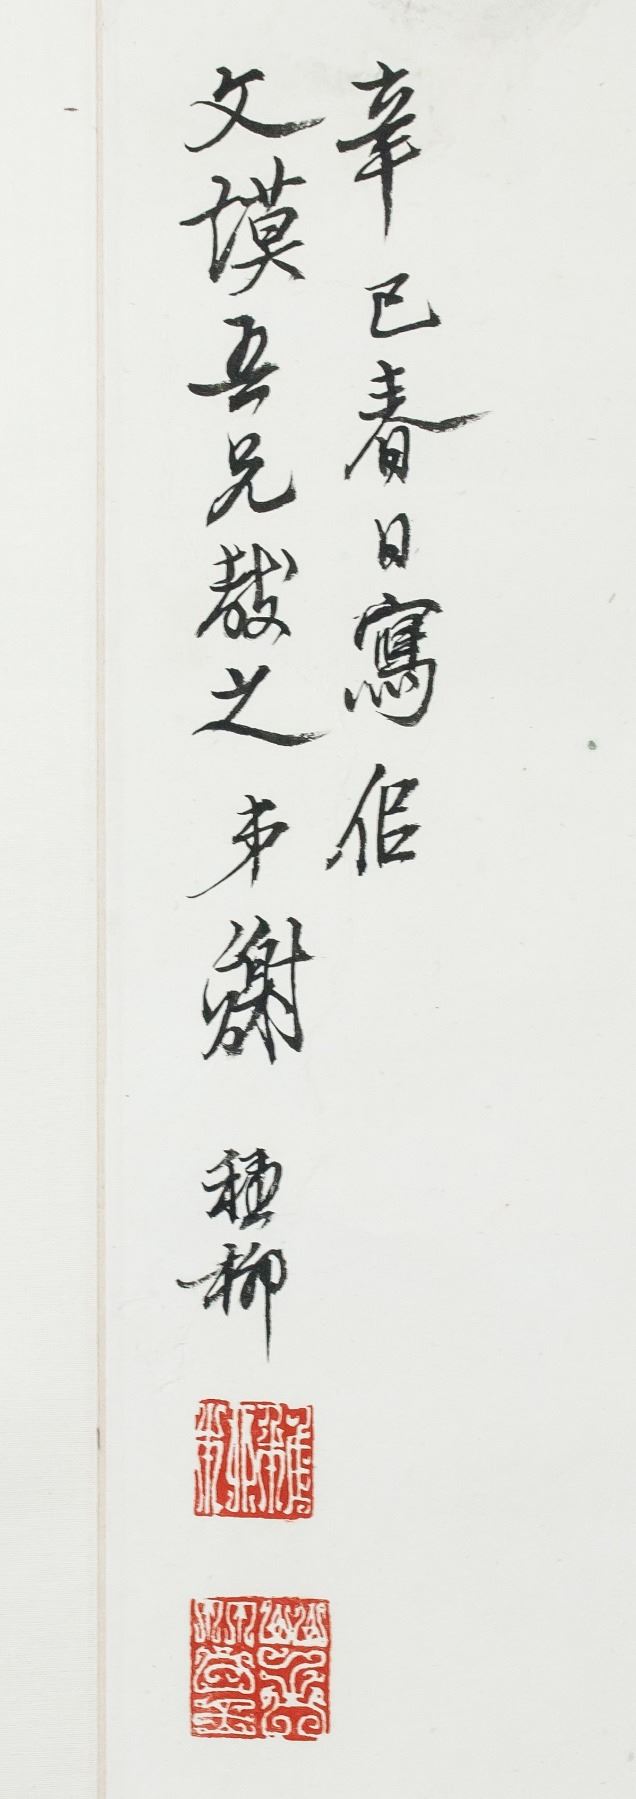 辛巳春日寫侣
文謨吾兄教之弟謝稚柳